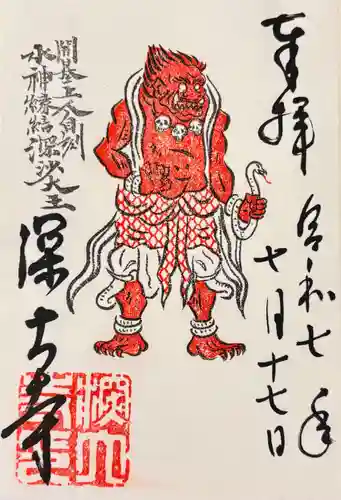 奉拝
令和七年
七月十七日
開基上人自刻
水神縁結深沙大王
深大寺